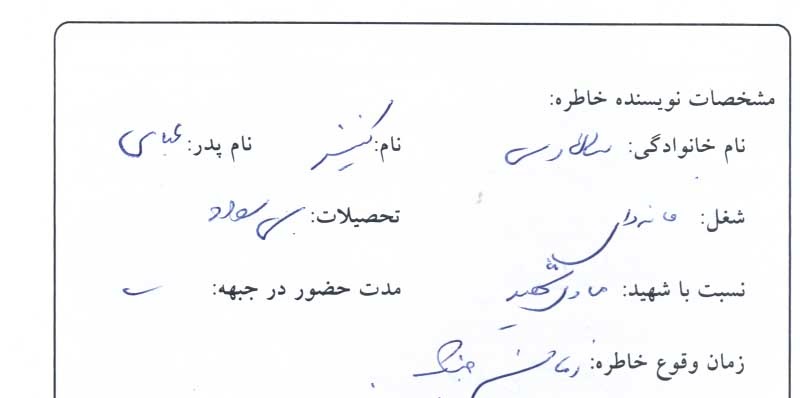 مشخصات نویسنده خاطره:
نام خانوادگی: نام: کنیز نام پدر: عباس
شغل: خانه دار تحصیلات: بی سواد
نسبت با شهید: مادر شهید مدت حضور در جبهه: -
زمان وقوع خاطره: زمان جنگ